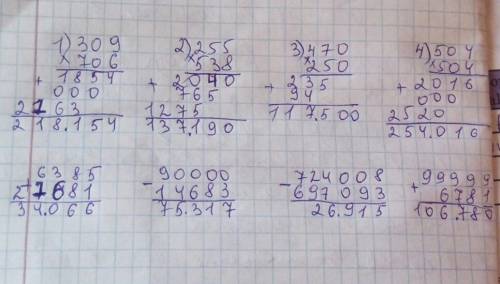 1) 309
× 706
+ 1854
000
2163
218.154
2) 255
× 538
+ 2040
765
1275
137.190
3) 470
250
+ 235
94
117.500
4) 504
× 504
+ 2016
000
2520
254.016
6385
27681
34.066
- 90000
14683
75.317
- 724008
697093
26.915
+ 99999
6781
106.780